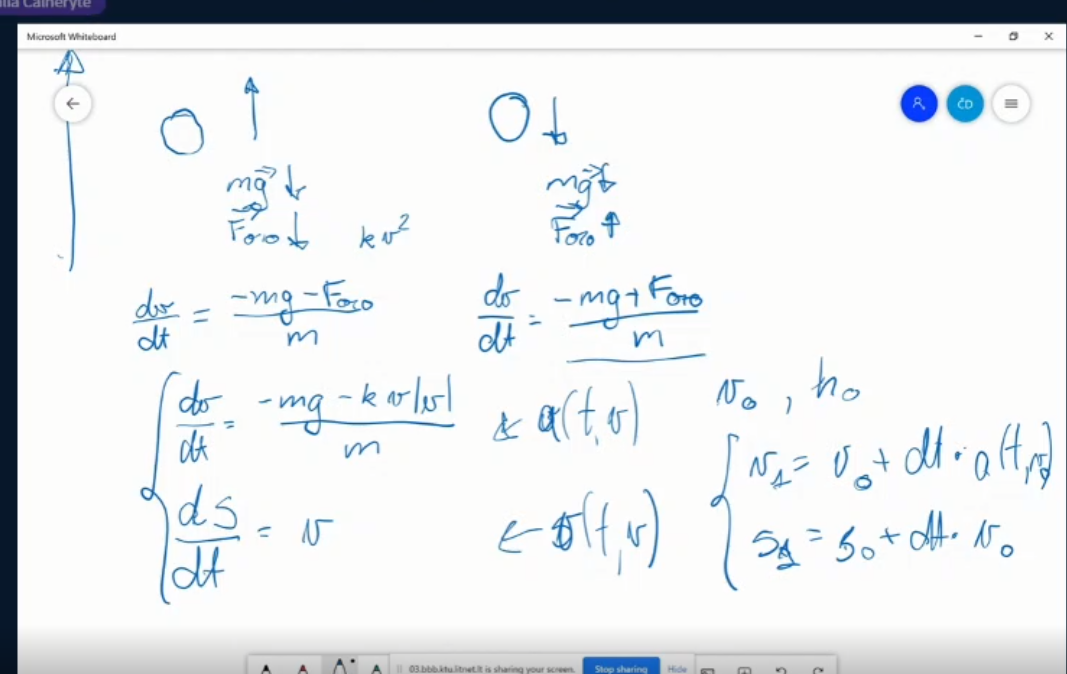 Microsoft Whiteboard
ČD
mg⃗ ↓
F⃗oro ↓ kv²
mg⃗ ↓
F⃗oro ↑
dv/dt = (-mg - Foro)/m
dv/dt = (-mg + Foro)/m
dv/dt = (-mg - kv|v|)/m ← a(t,v)
ds/dt = v ← v(t,v)
v₀, h₀
v₁ = v₀ + dt · a(t,v)
s₁ = s₀ + dt · v₀
03.bbb.ktu.litnet.lt is sharing your screen.
Stop sharing
Hide